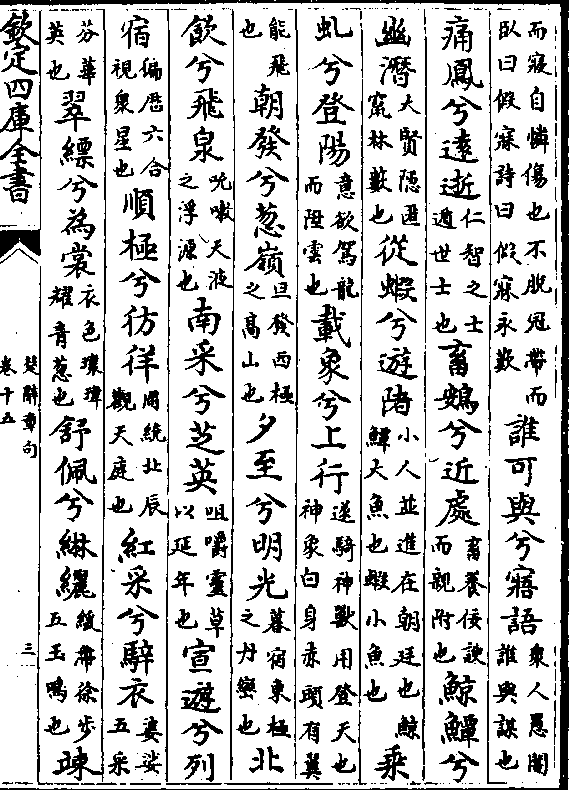 而寢自憐傷也不脫冠帶而臥曰假寐詩曰假寐永歎誰可與兮寤語衆人愚闇誰與謀也
痛鳳兮遠逝仁智之士遁世士也畜鴳兮近處畜養佞諛而親附也鯨鱏兮
幽潛大賢隱匿竄林藪也從蝦兮遊陼小人並進在朝廷也鯨鱏大魚也蝦小魚也乘
虬兮登陽意欲駕龍而陞雲也載象兮上行遂騎神獸用登天也神象白身赤頭有翼
能飛也朝發兮葱嶺旦發西極之高山也夕至兮明光暮宿東極之丹巒也北
飲兮飛泉吮嗽天液之浮源也南采兮芝英咀嚼靈草以延年也宣遊兮列
宿偏歴六合視衆星也順極兮彷徉周繞北辰觀天庭也紅采兮騂衣婆娑五采
芬華英也翠縹兮為裳衣色瓌瑋耀青葱也舒佩兮綝纚緩帶徐步五玉鳴也竦
欽定四庫全書
楚辭章句
卷十五
三